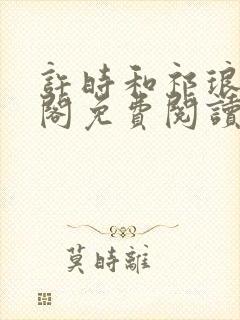 許時和祁琅
閣免費閱讀
莫時離